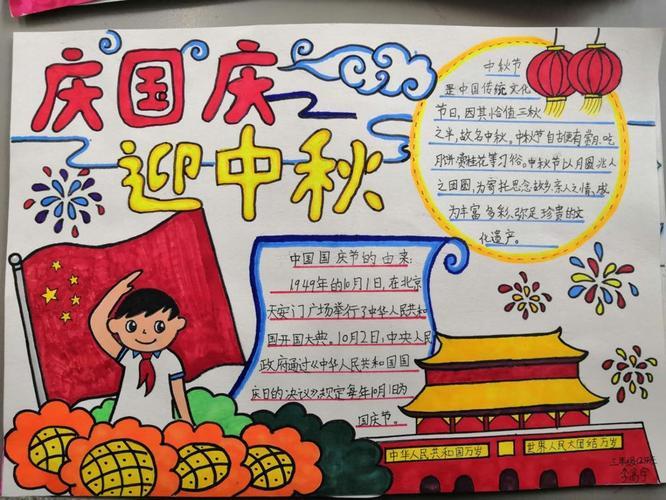 庆国庆
迎中秋
中秋节
是中国传统文化
节日,因其恰值三秋
之半,故名中秋。中秋节自古便有赏月、吃
月饼、赏桂花等习俗。中秋节以月圆兆人
之团圆,为寄托思念故乡亲人之情,成
为丰富多彩、弥足珍贵的文
化遗产。
中国国庆节的由来:
1949年的10月1日,在北京
天安门广场举行了中华人民共和
国开国大典。10月2日,中央人民
政府通过《中华人民共和国国
庆日的决议》规定每年10月1日为
国庆节。
中华人民共和国万岁
世界人民大团结万岁